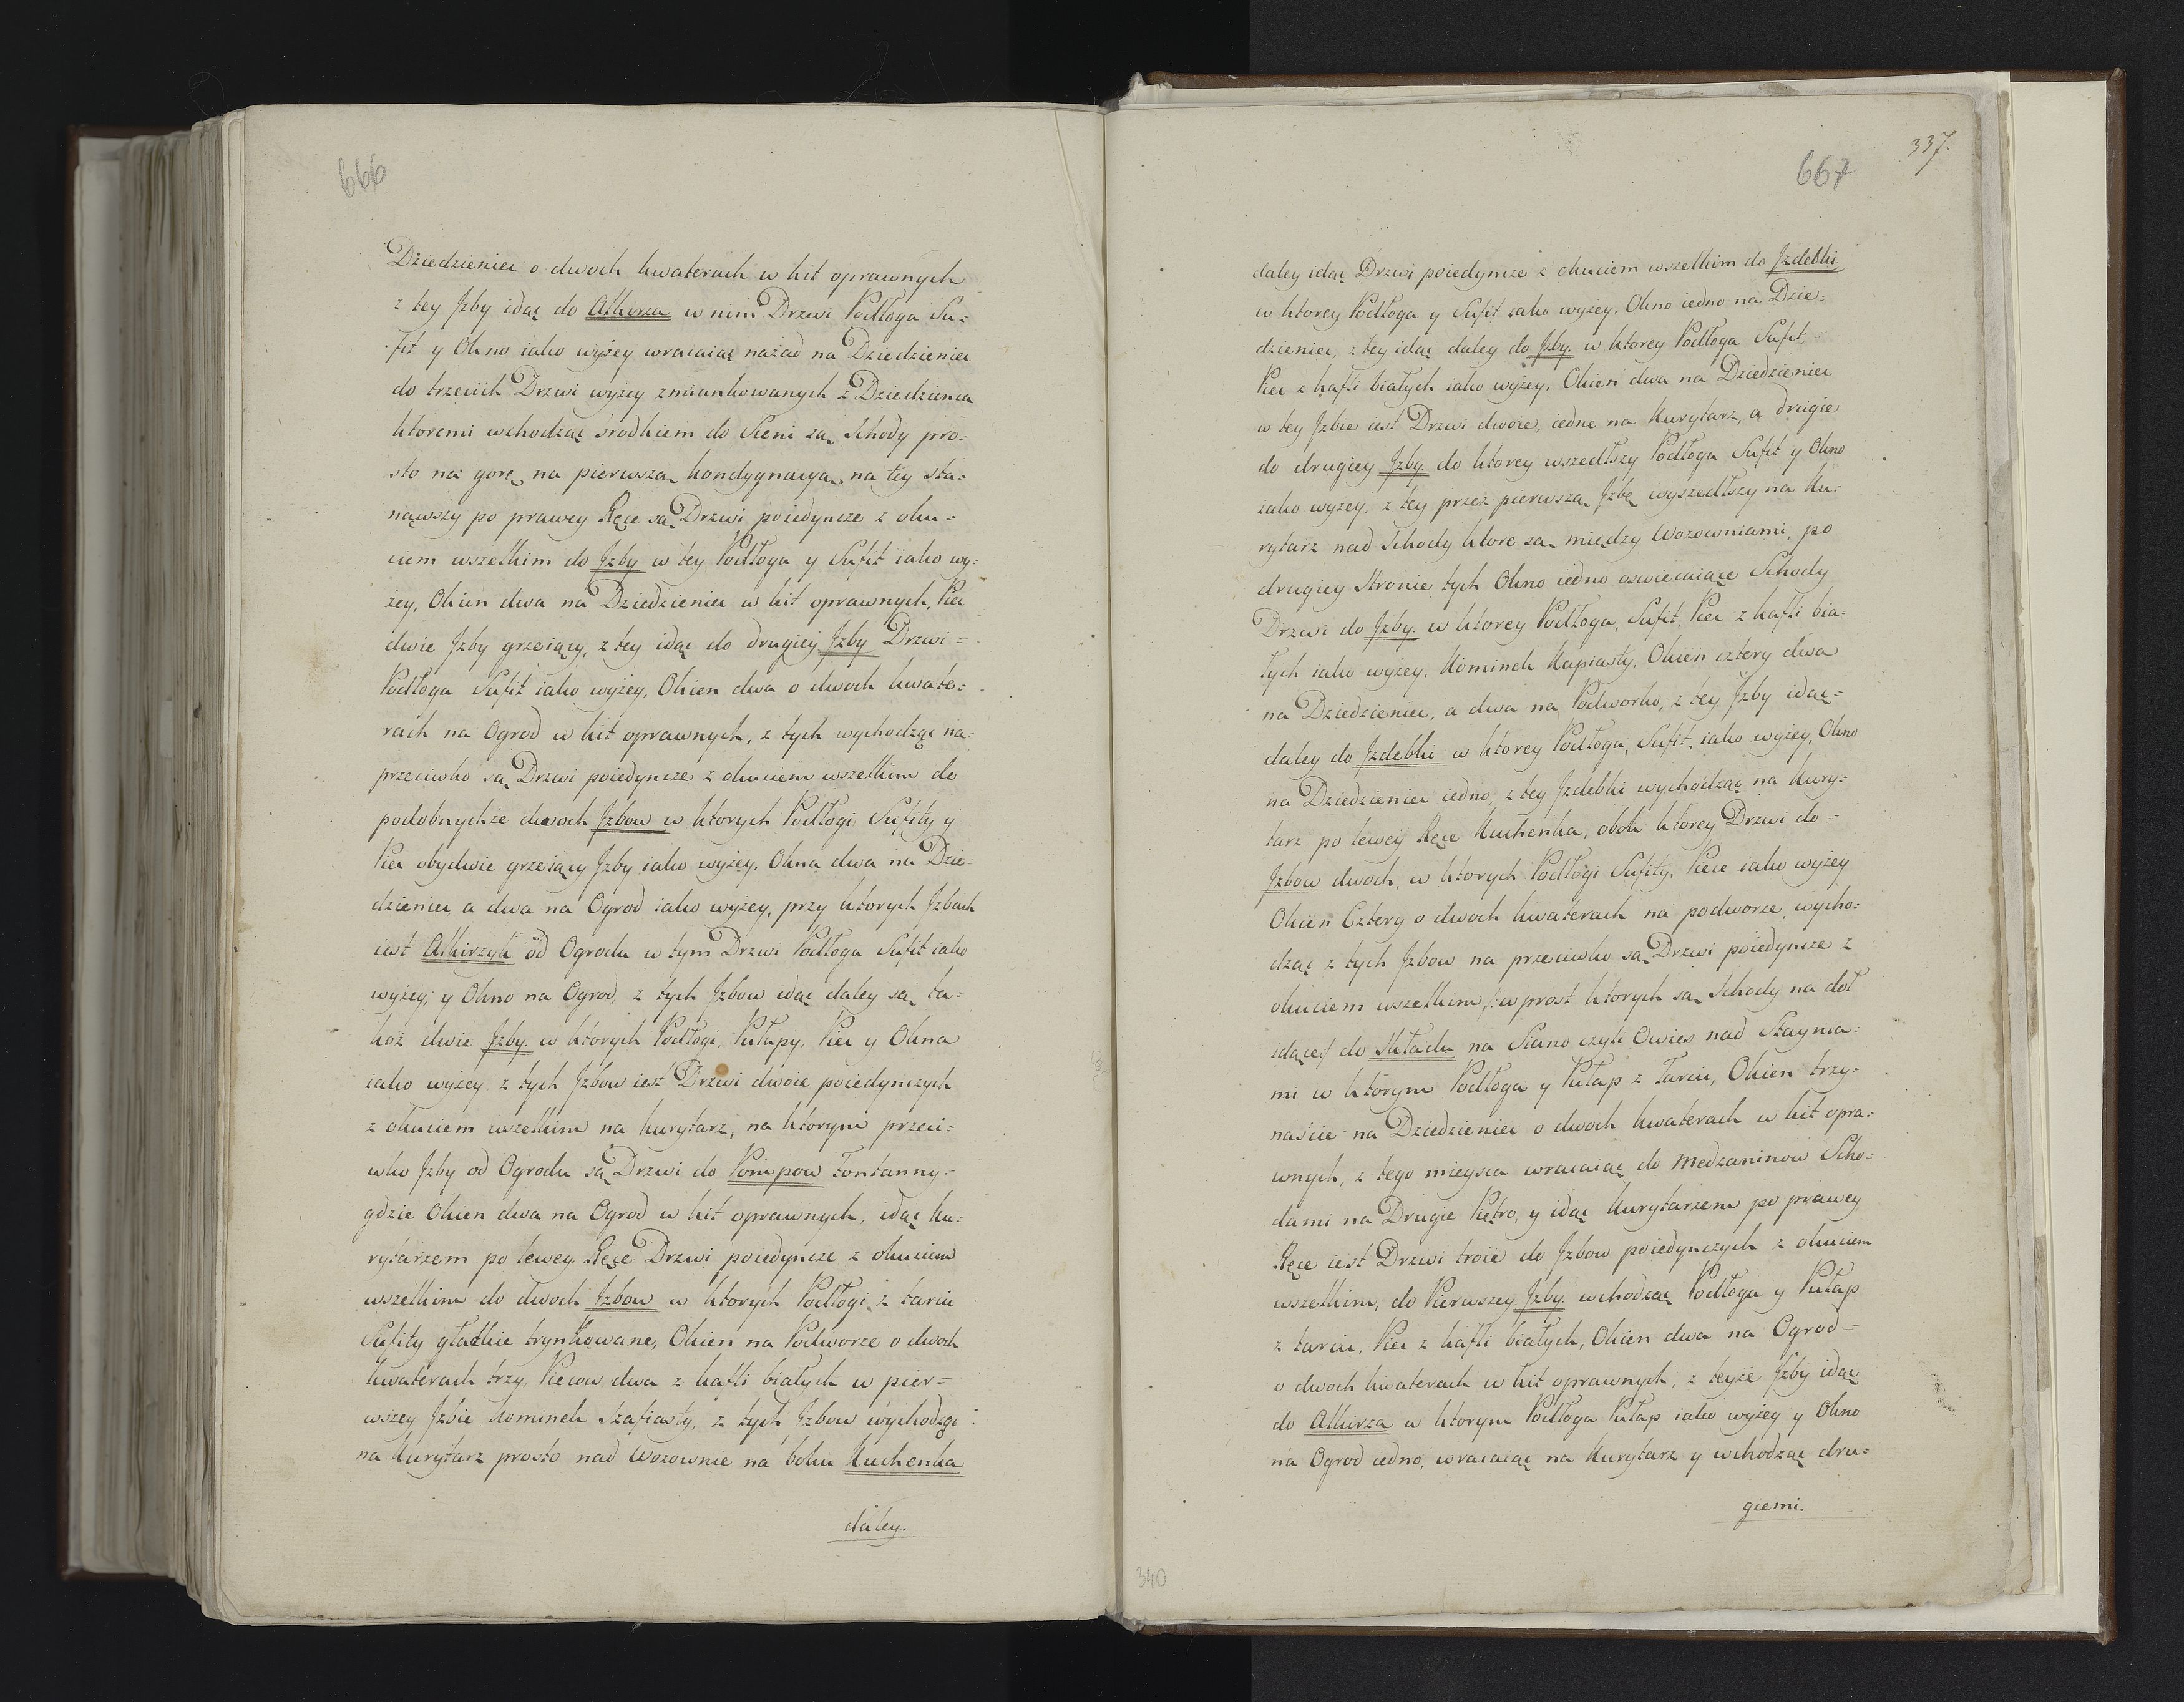 666
Dziedzieniec o dwoch kwaterach w kit oprawnych
z tey Jzby idąc do Alkierza w nim Drzwi Podłoga Su=
fit y Okno iako wyżey wracaiąc nazad na Dziedzieniec
do trzecich Drzwi wyżey zmiankowanych z Dziedzienca
ktoremi wchodząc srodkiem do Sieni są Schody pro=
sto na gorę na pierwszą kondygnacyą na tey sta=
nąwszy po prawey Ręce są Drzwi poiedyncze z oku=
ciem wszelkim do Jzby w tey Podłoga y Sufit iako wy=
żey, Okien dwa na Dziedzieniec w kit oprawnych, Piec
dwie Jzby grzeiący, z tey idąc do drugiey Jzby Drzwi =
Podłoga Sufit iako wyżey, Okien dwa o dwoch kwate=
rach na Ogrod w kit oprawnych, z tych wychodząc na=
przeciwko są Drzwi poiedyncze z okuciem wszelkim do
podobnychże dwoch Jzbow w ktorych Podłogi Sufity y
Piec obydwie grzeiący Jzby iako wyżey. Okna dwa na Dzie=
dzieniec a dwa na Ogrod iako wyżey, przy ktorych Jzbach
iest Alkirzyk od Ogrodu w tym Drzwi Podłoga Sufit iako
wyżey, y Okno na Ogrod, z tych Jzbow idąc daley są ta=
koż dwie Jzby w ktorych Podłogi, Pułapy, Piec y Okna
iako wyżey z tych Jzbow iest Drzwi dwoie poiedynczych
z okuciem wszelkim na kurytarz, na ktorym przeci=
wko Jzby od Ogrodu są Drzwi do Pompow Fontanny=
gdzie Okien dwa na Ogrod w kit oprawnych, idąc Ku=
rytarzem po lewey Ręce Drzwi poiedyncze z okuciem
wszelkim do dwoch Jzbow w ktorych Podłogi z tarcic
Sufity gładkie trynkowane, Okien na Podworze o dwoch
kwaterach trzy, Piecow dwa z kafli białych w pier=
wszey Jzbie Kominek Szafiasty, z tych Jzbow wychodząc
na Kurytarz prosto nad Wozownie na boku Kuchenka
daley.
667
337.
daley idąc Drzwi poiedyncze z okuciem wszelkim do Jzdebki
w ktorey Podłoga y Sufit iako wyżey. Okno iedno na Dzie=
dzieniec, z tey idąc daley do Jzby. w ktorey Podłoga Sufit, =
Piec z kafli białych iako wyżey, Okien dwa na Dziedzieniec
w tey Jzbie iest Drzwi dwoie, iedne na Kurytarz, a drugie
do drugiey Jzby do ktorey wszedłszy Podłoga Sufit y Okno
iako wyżey, z tey przez pierwszą Jzbę wyszedłszy na Ku=
rytarz nad Schody ktore są między Wozowniami, po
drugiey Stronie tych Okno iedno oswiecaiące Schody
Drzwi do Jzby. w ktorey Podłoga, Sufit, Piec z kafli bia=
łych iako wyżey, Kominek Kapiasty, Okien cztery dwa
na Dziedzieniec, a dwa na Podworko, z tey Jzby idąc=
daley do Jzdebki w ktorey Podłoga, Sufit, iako wyżey, Okno
na Dziedzieniec iedno, z tey Jzdebki wychodząc na Kury=
tarz po lewey Ręce Kuchenka, obok ktorey Drzwi do =
Jzbow dwoch, w ktorych Podłogi Sufity, Piece iako wyżey
Okien Cztery o dwoch kwaterach na podworze, wycho=
dząc z tych Jzbow na przeciwko są Drzwi poiedyncze z
okuciem wszelkim /: wprost ktorych są Schody na doł
idące :/ do Składu na Siano czyli Owies nad Staynia=
mi w ktorym Podłoga y Pułap z tarcic, Okien trzy=
naście na Dziedzieniec o dwoch kwaterach w kit opra=
wnych, z tego mieysca wracaiąc do Medzaninow Scho=
dami na Drugie Piętro, y idąc Kurytarzem po prawey
Ręce iest Drzwi troie do Jzbow poiedynczych z okuciem
wszelkim, do Pierwszey Jzby. wchodząc Podłoga y Pułap
z tarcic, Piec z kafli białych, Okien dwa na Ogrod =
o dwoch kwaterach w kit oprawnych, z teyże Jzby idąc
do Alkirza w ktorym Podłoga Pułap iako wyżey y Okno
na Ogrod iedno, wracaiąc na Kurytarz y wchodząc dru=
giemi.
340